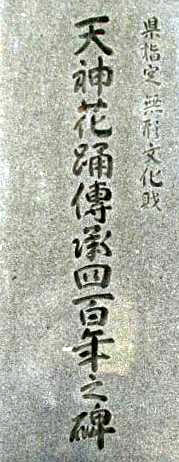 県指定無形文化財
天神花踊傳承四百年之碑